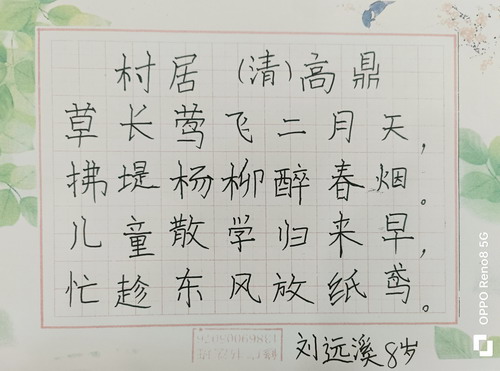 村居 (清)高鼎
草长莺飞二月天，
拂堤杨柳醉春烟。
儿童散学归来早，
忙趁东风放纸鸢。
刘远溪 8岁
OPPO Reno8 5G